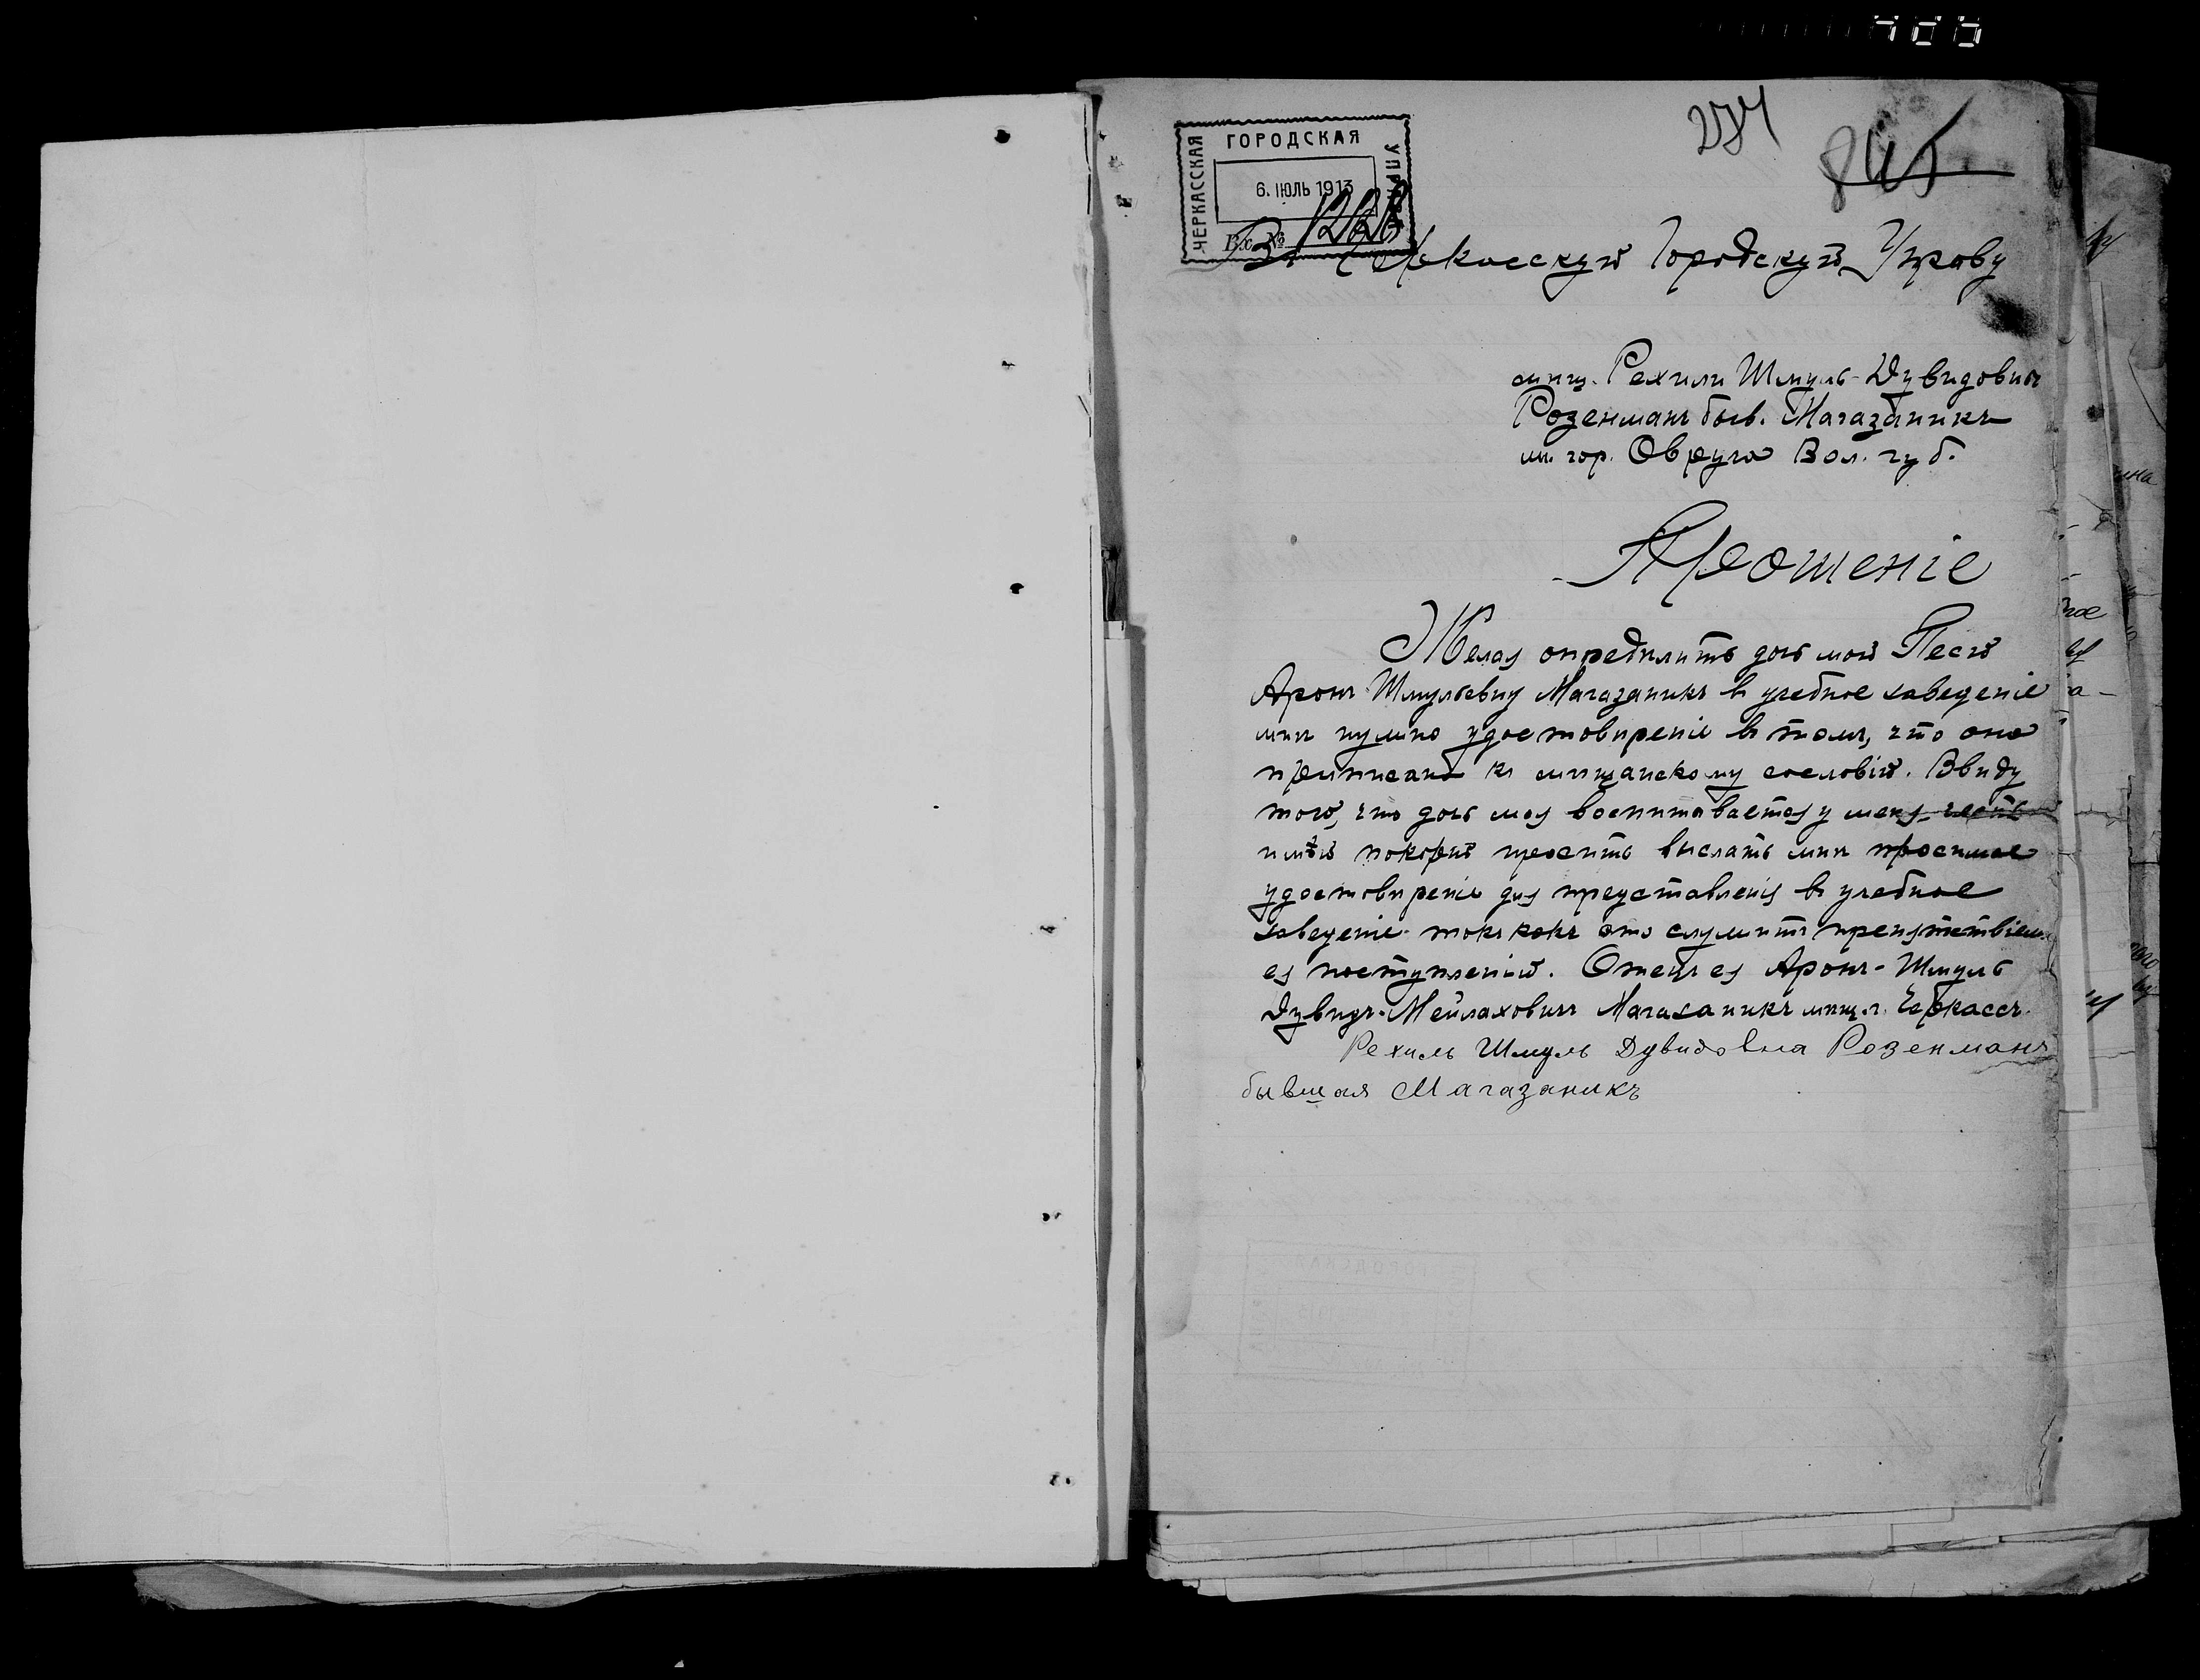 284
845
ЧЕРКАССКАЯ ГОРОДСКАЯ УПРАВА
6. ІЮЛЬ 1913
Вх. №
Въ Черкасскую Городскую Управу
мѣщ. Рехили Шмуль-Дувидовны
Розенманъ бывш. Магазаникъ
гор. Овруча Вол. губ.
Прошеніе
Желая опредѣлить дочь мою Песю
Аронъ-Шмульевну Магазаникъ въ учебное заведеніе
мнѣ нужно удостовѣреніе въ томъ, что она
приписана къ мѣщанскому сословію. Ввиду
того, что дочь моя воспитывается у меня честь
имѣю покорнѣ просить выслать мнѣ просимое
удостовѣреніе для представленія въ учебное
заведеніе такъ какъ это служитъ препятствіемъ
ея поступленію. Отецъ ея Аронъ-Шмуль
Дувидъ-Мейлаховичъ Магазаникъ мѣщ. г. Черкассъ.
Рехиль Шмуль Дувидовна Розенманъ
бывшая Магазаникъ